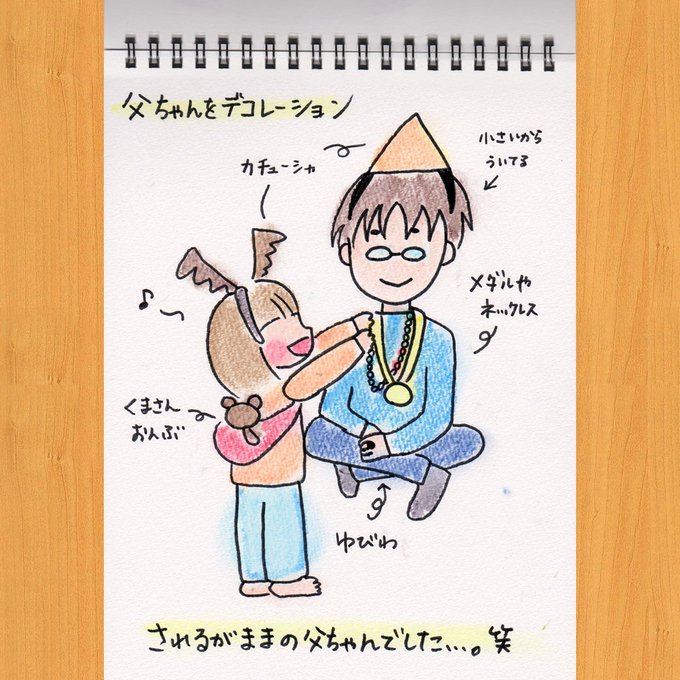 父ちゃんをデコレーション
カチューシャ
小さいから
ういてる
♪
メダルや
ネックレス
くまさん
おんぶ
ゆびわ
されるがままの父ちゃんでした…。笑